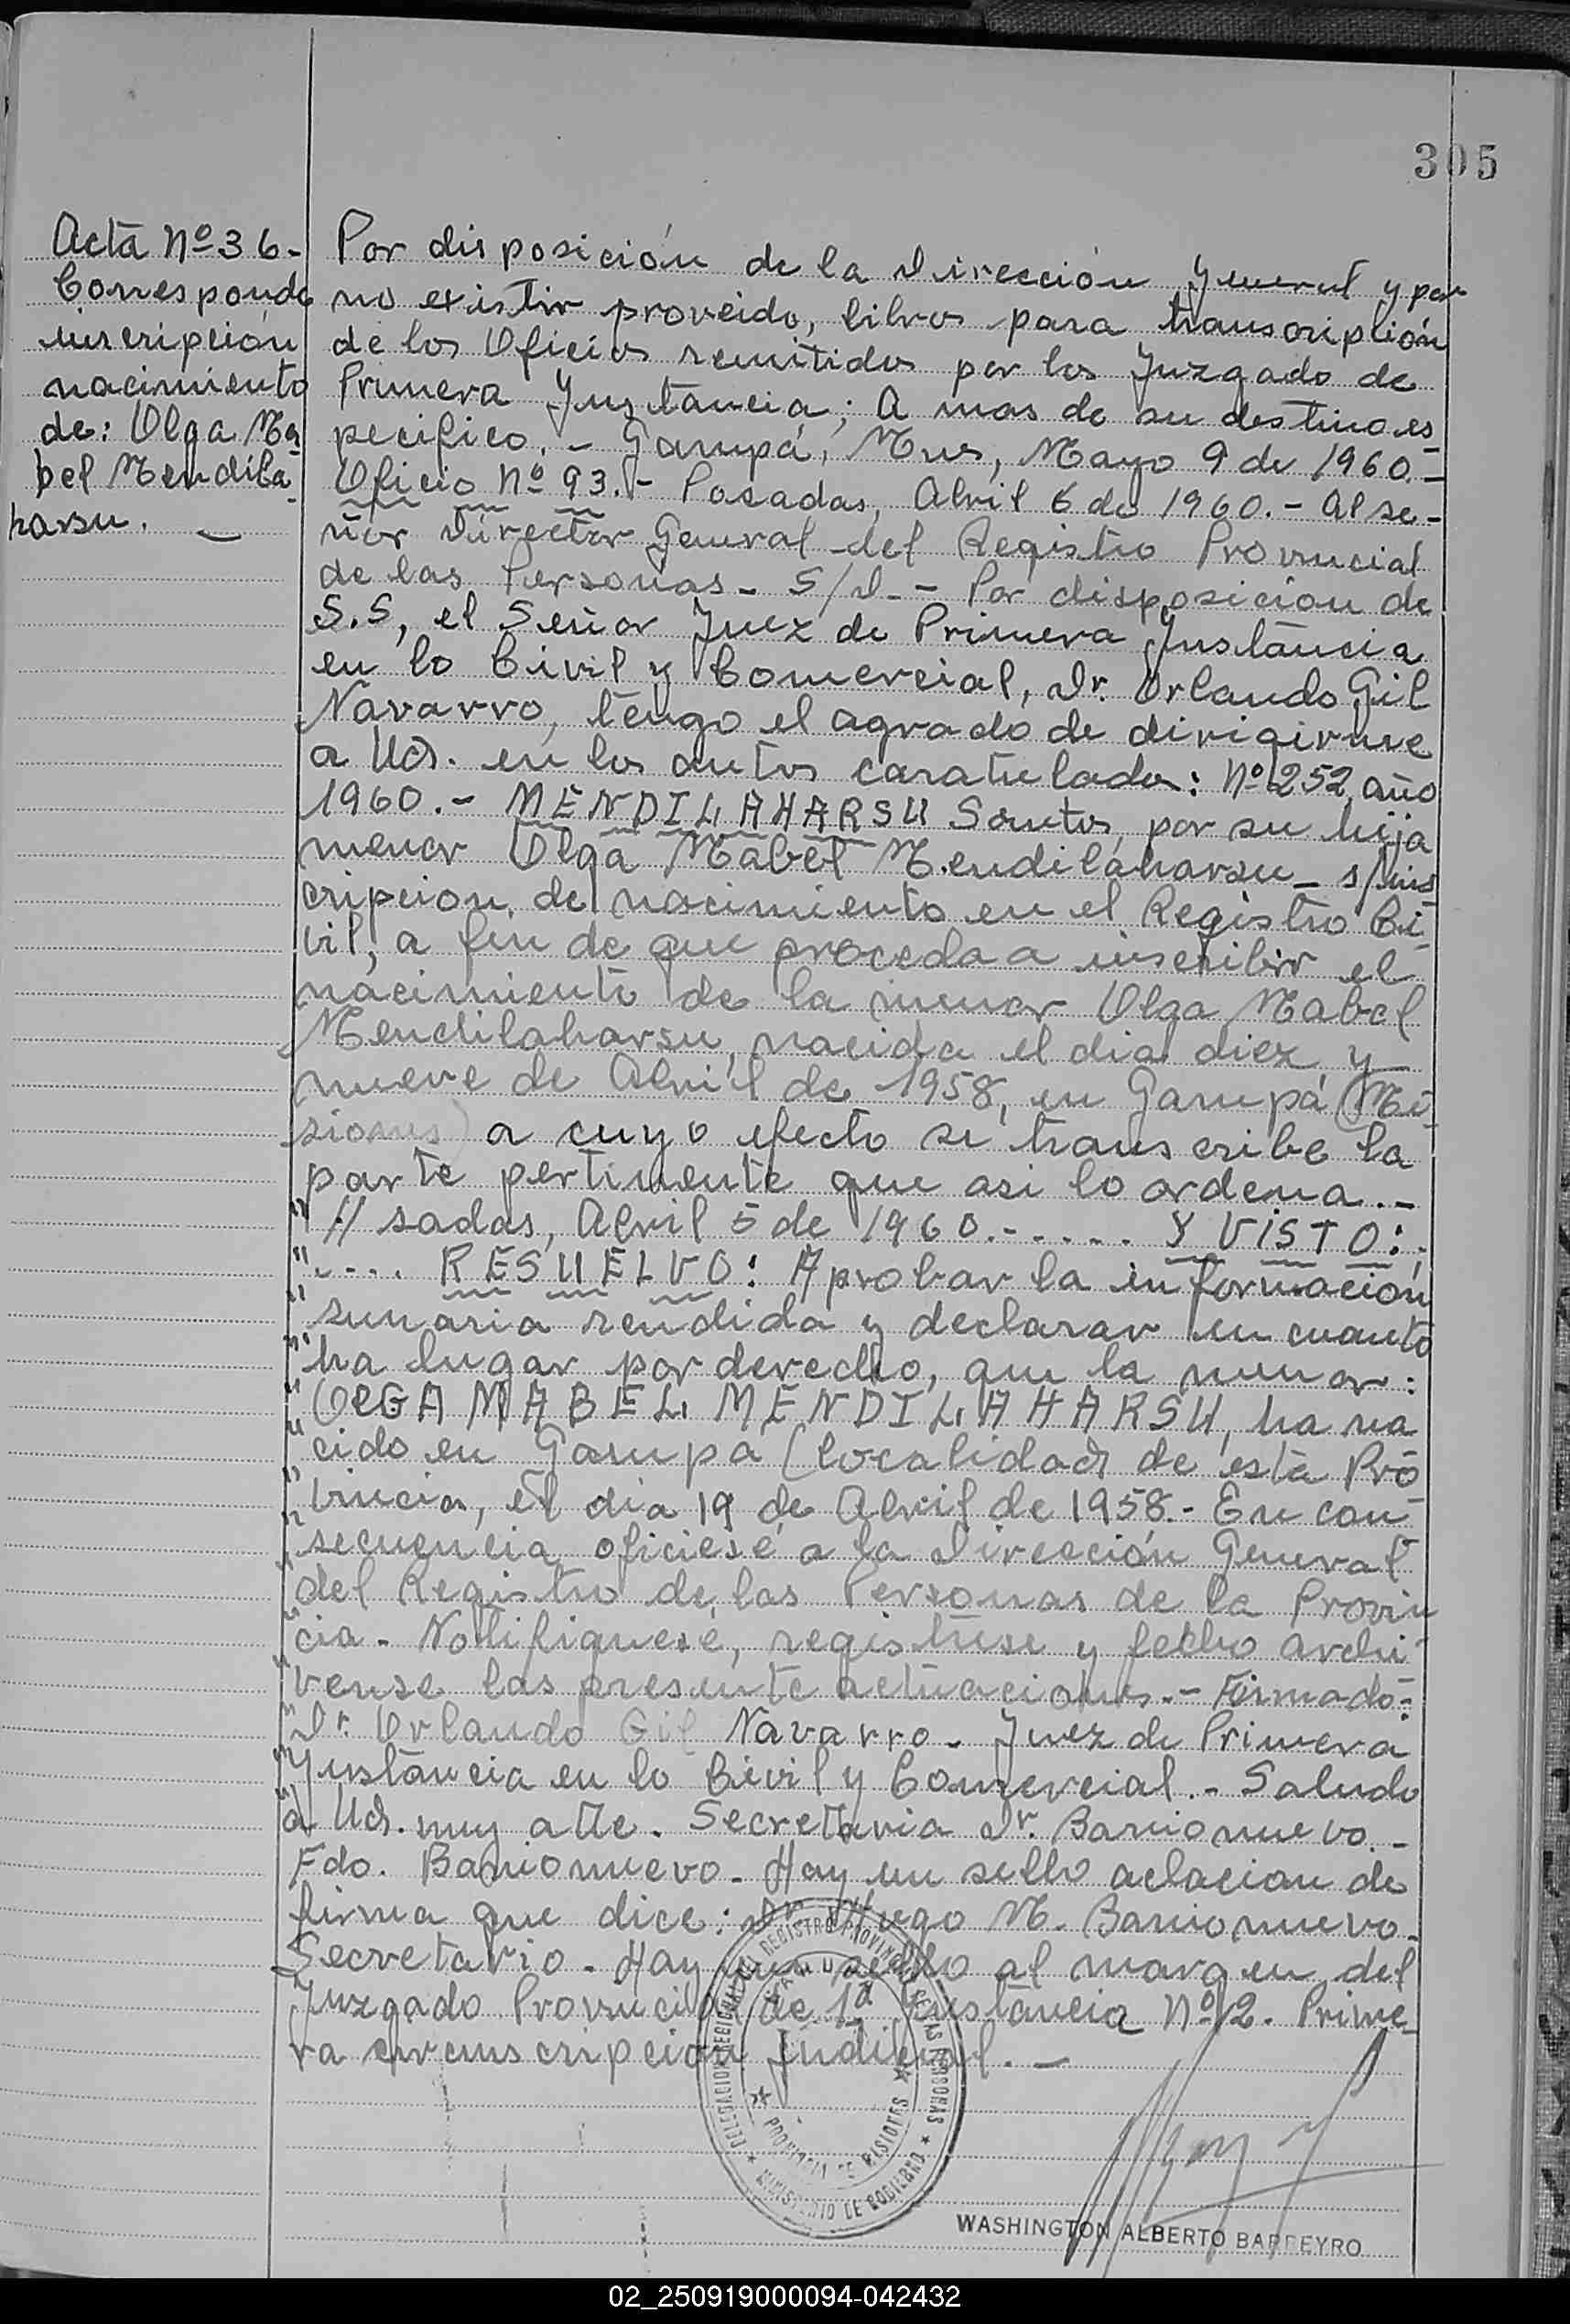 305
Acta Nº 36-
Corresponde
inscripción
nacimiento
de: Olga Ma
bel Mendila-
harsu. -
Por disposición de la Dirección General y por
no existir proveido, libros para transcripción
de los Oficios remitidos por los Juzgado de
Primera Instancia; A mas de su destino es
pecifico. - Garupá, Mnes, Mayo 9 de 1960.-
Oficio Nº 93.- Posadas, Abril 6 de 1960.- Al se-
ñor Director General del Registro Provincial
de las Personas - S/D.- Por disposición de
S.S, el Señor Juez de Primera Instancia
en lo Civil y Comercial, Dr. Orlando Gil
Navarro, tengo el agrado de dirigirme
a Ud. en los autos caratulados: Nº 252, año
1960.- MENDILAHARSU Santos, por su hija
menor Olga Mabel Mendilaharsu - s/ins
cripcion de nacimiento en el Registro Ci-
vil, a fin de que proceda a inscribir el
nacimiento de la menor Olga Mabel
Mendilaharsu, nacida el dia diez y
nueve de Abril de 1958, en Garupá (Mi-
siones) a cuyo efecto se transcribe la
parte pertinente que asi lo ordena.-
" // sadas, Abril 5 de 1960.- . . . . . Y VISTO:;
" .... RESUELVO: Aprobar la información
" sumaria rendida y declarar en cuanto
" ha lugar por derecho, que la menor:
" OLGA MABEL MENDILAHARSU, ha na
" cido en Garupá (localidad de esta Pro
" vincia, el dia 19 de Abril de 1958.- En con-
" secuencia oficiese a la Dirección General
" del Registro de las Personas de la Provin
" cia - Notifiquese, registrese y fecho archi-
" vense las presente actuaciones.- Firmado:
" Dr. Orlando Gil Navarro - Juez de Primera
" Instancia en lo Civil y Comercial.- Saludo
" a Ud. muy atte. Secretaria Dr. Barrionuevo -
Fdo. Barrionuevo - Hay un sello aclacion de
firma que dice: Dr. Hugo M. Barrionuevo -
Secretario - Hay un sello al margen del
Juzgado Provincial de 1ª Instancia Nº 2. Prime-
ra circunscripcion Judicial. -
DELEGACION REGIONAL DEL REGISTRO PROVINCIAL DE LAS PERSONAS
PROVINCIA DE MISIONES
MINISTERIO DE GOBIERNO
WASHINGTON ALBERTO BARREYRO
02_250919000094-042432